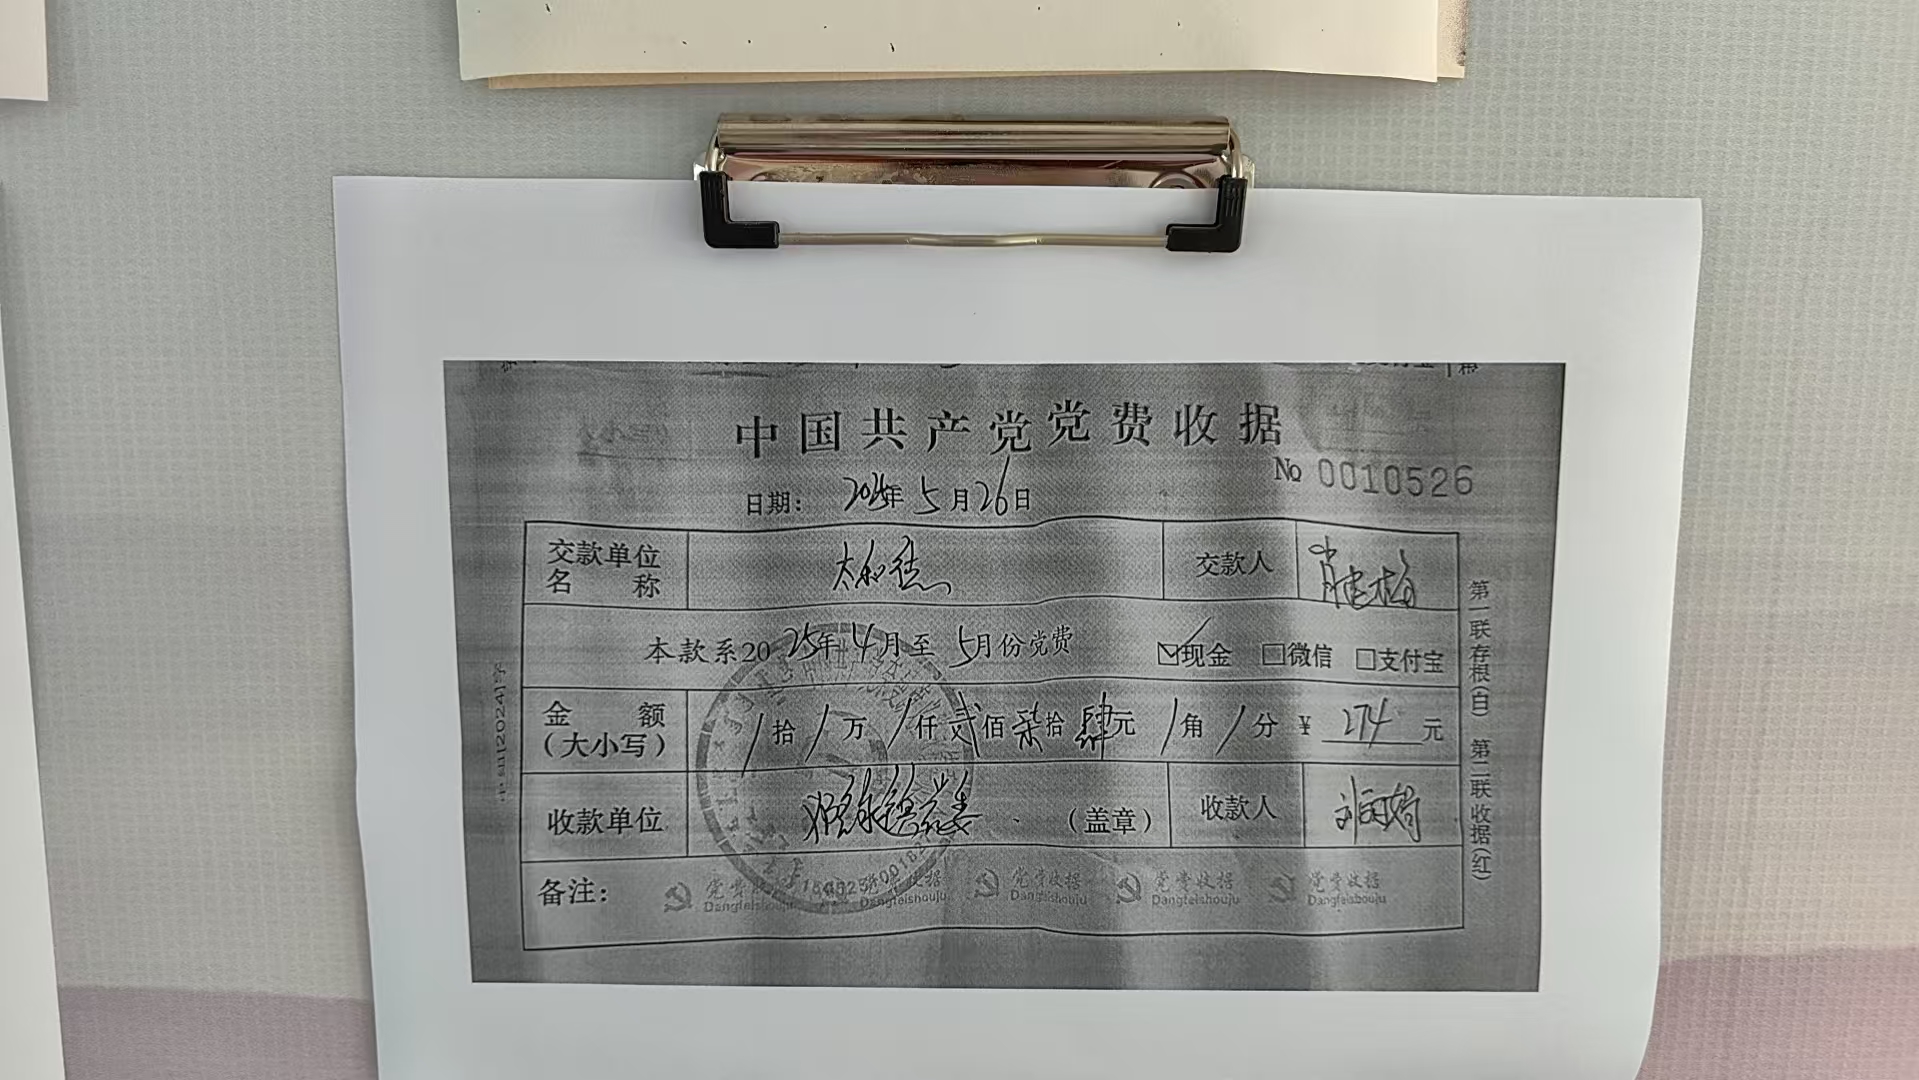 中国共产党党费收据
№ 0010526
日期: 2025年 5月26日
交款单位名称 太和 交款人 肖
本款系2025年4月至5月份党费 ☑现金 □微信 □支付宝
金额(大小写) /拾/万/仟贰佰柒拾肆元/角/分 ¥ 274 元
收款单位 (盖章) 收款人 刘
备注:
党费收据 党费收据 党费收据 党费收据 党费收据
Dangfeishouju Dangfeishouju Dangfeishouju Dangfeishouju Dangfeishouju
第一联存根(白) 第二联收据(红)